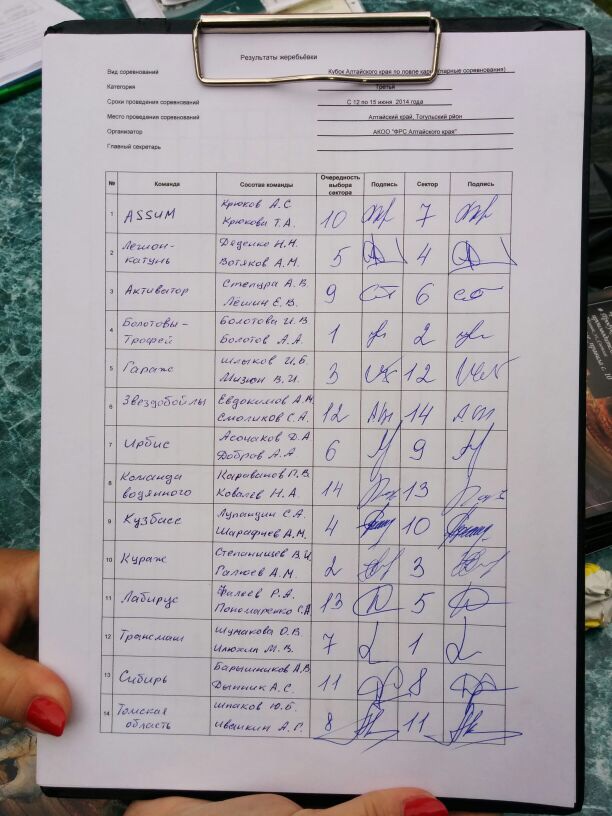 Результаты жеребьёвки
Вид соревнований Кубок Алтайского края по ловле (парные соревнования)
Категория Третья
Сроки проведения соревнований С 12 по 15 июня 2014 года
Место проведения соревнований Алтайский край, Тогульский рйон
Организатор АКОО "ФРС Алтайского края"
Главный секретарь
№ Команда Сосотав команды Очередность выбора сектора Подпись Сектор Подпись
1 ASSUM Крюков А.С 10 7
Крюкова Т.А.
2 Легион- Деденко Н.Н. 5 4
катунь Вотяков А.М.
3 Активатор Степура А.В. 9 6
Лёшин Е.В.
4 Болотовы- Болотова И.В 1 2
Трофей Болотов А.А.
5 Гараж Шлыков И.Б 3 12
Мизюн В.И.
6 Звездобойлы Евдокимов А.М. 12 14
Смоликов С.А.
7 Ирбис Асочаков Д.А 6 9
Добров А.А
8 Команда Караванов П.В. 14 13
водянного Ковалев Н.А.
9 Кузбасс Лупандин С.А. 4 10
Шарафиев А.М.
10 Кураж Степанищев В.И. 2 3
Галюев А.М.
11 Лабирус Фалеев Р.А. 13 5
Пономаренко С.А
12 Трансмаш Шумакова О.В. 7 1
Илюхин М.В.
13 Сибирь Барышников А.В. 11 8
Дынник А.С.
14 Томская Шпаков Ю.Б. 8 11
область Иванкин А.Г.